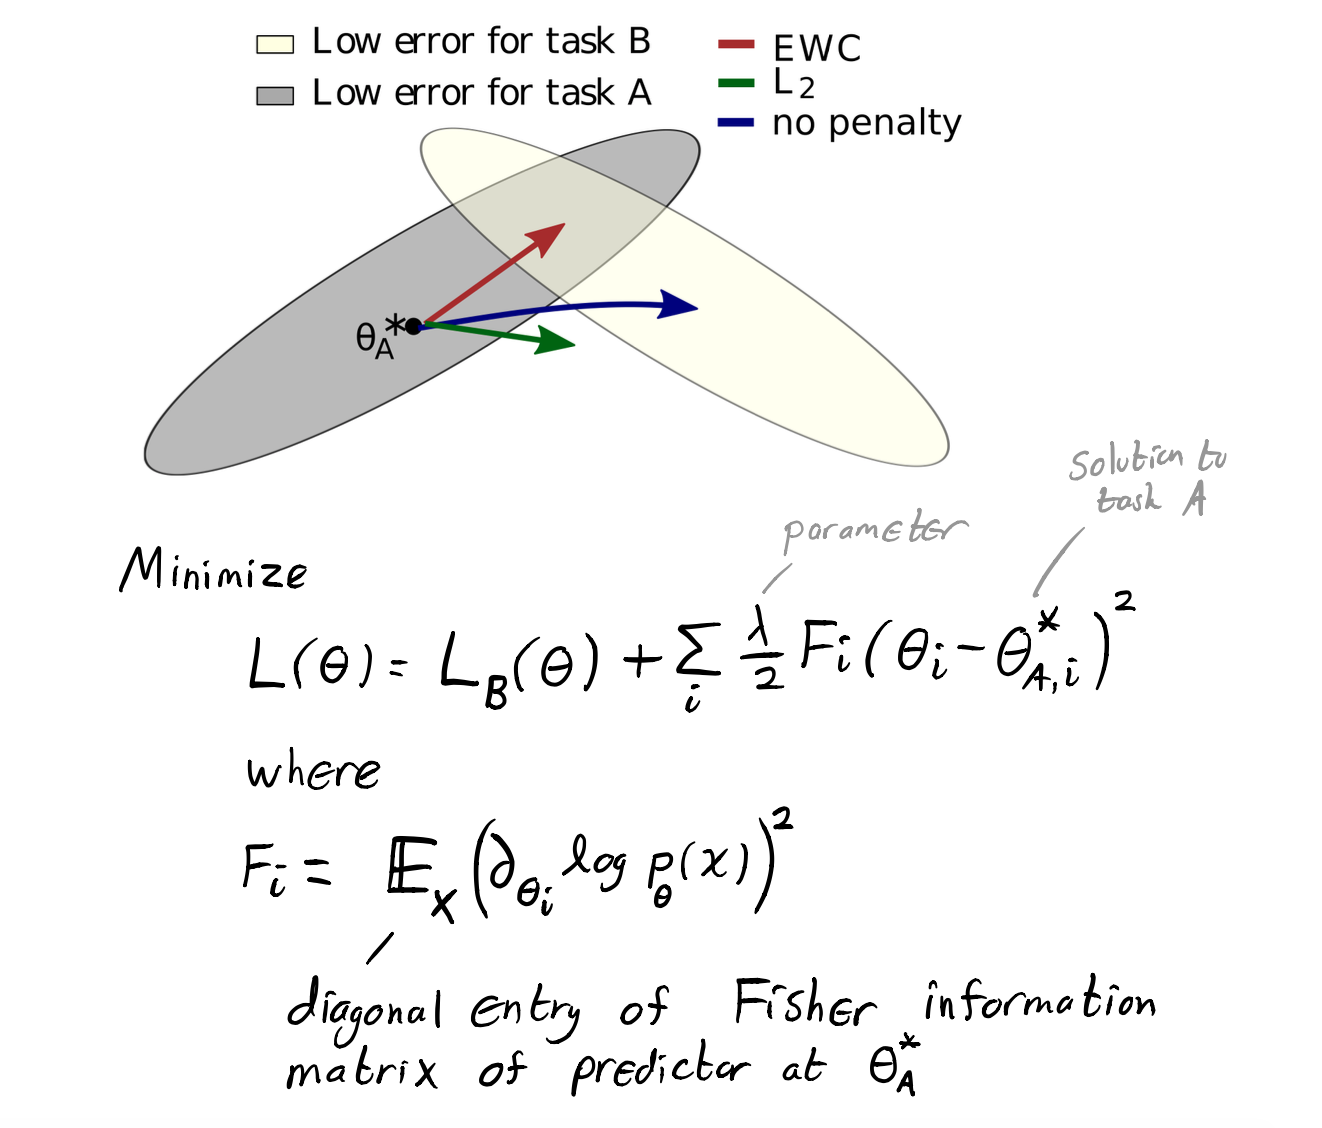 Low error for task B
Low error for task A
EWC
L₂
no penalty
θ_A*
solution to
task A
parameter
Minimize
L(θ) = L_B(θ) + Σ_i λ/2 F_i (θ_i - θ*_{A,i})²
where
F_i = 𝔼_X (∂_{θ_i} log p_θ(x))²
diagonal entry of Fisher information
matrix of predictor at θ*_A